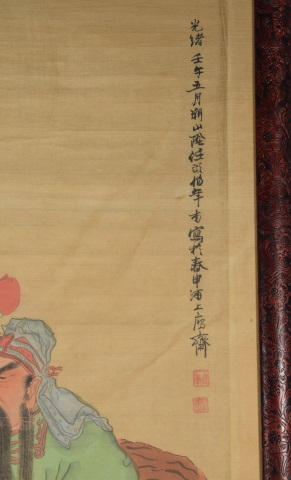 光緒壬午五月朔山陰任頤伯年甫寫於春申浦上寓齋